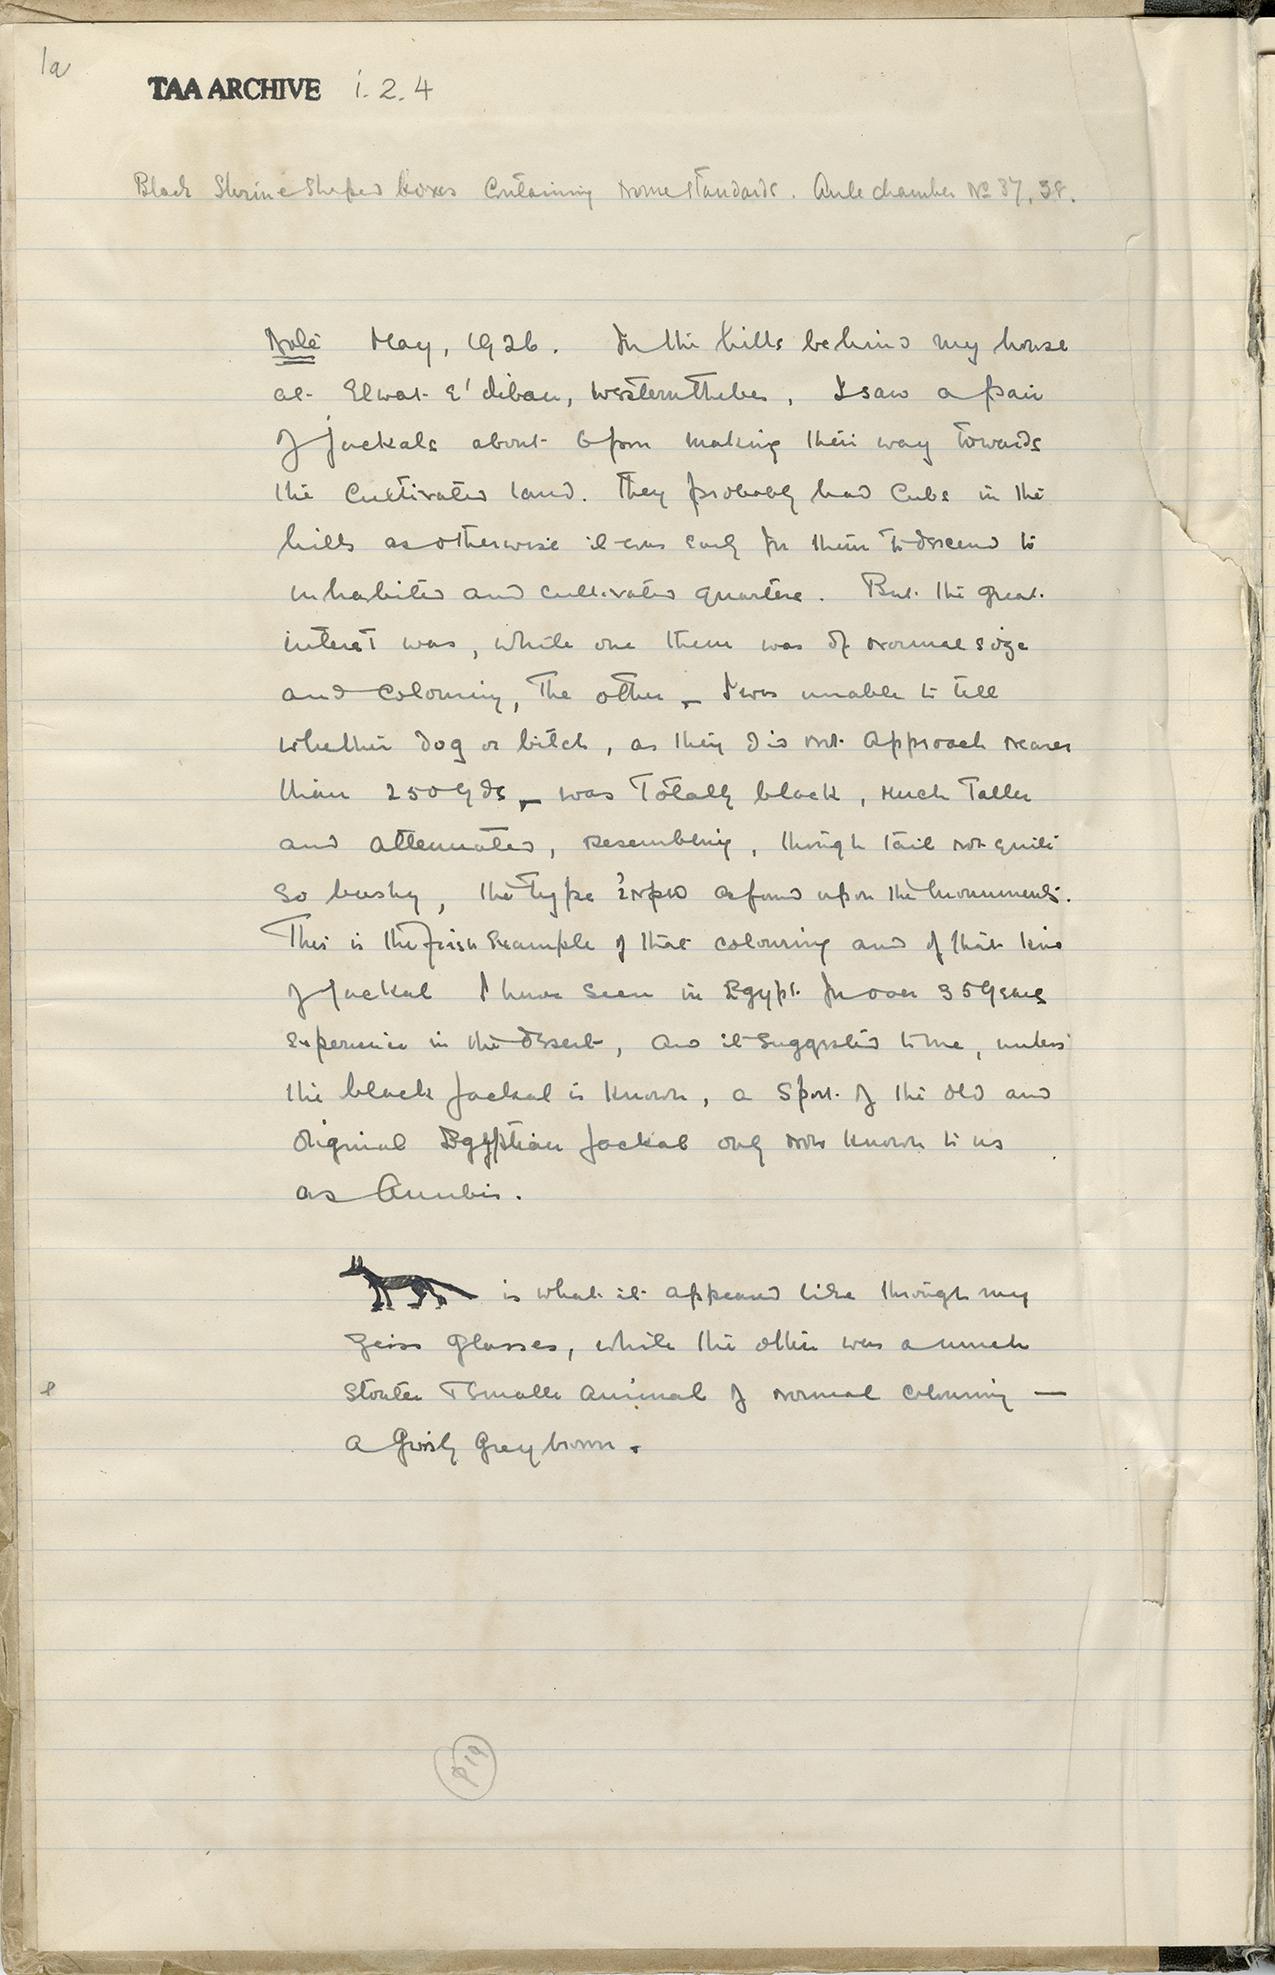 1a
TAA ARCHIVE i. 2. 4
Black Shrine Shaped boxes Containing Nome Standards. Antechamber No 37, 38.
Note May, 1926. In the hills behind my house
at Elwat E' diban, Western Thebes, I saw a pair
of jackals about 6 pm making their way towards
the Cultivated land. They probably had Cubs in the
hills as otherwise it was early for them to descend to
inhabited and cultivated quarters. But the great
interest was, while one them was of normal size
and colouring, the other – I was unable to tell
whether dog or bitch, as they did not approach nearer
than 250 yds – was Totally black, much taller
and attenuated, resembling, though tail not quite
so bushy, the type inpw as found upon the monuments.
This is the first Example of that colouring and of that kind
of jackal I have seen in Egypt in over 35 years
experience in the desert, and it suggested to me, unless
the black jackal is known, a Sport of the old and
original Egyptian jackal only now known to us
as Anubis.
is what it appeared like through my
Zeiss glasses, while the other was a much
stouter & smaller animal of normal colouring —
a grisly grey brown.
P 19